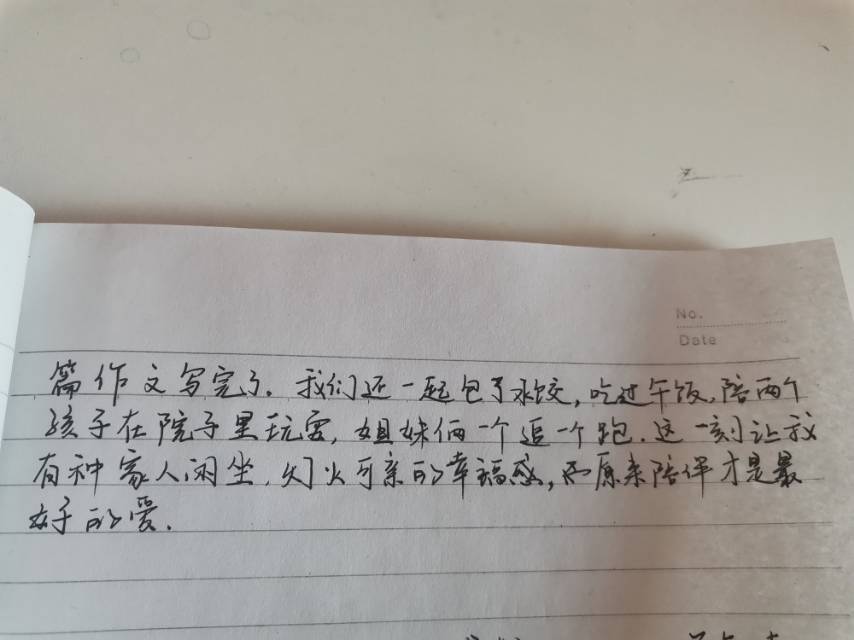 No.
Date
篇作文写完了。我们还一起包了水饺,吃过午饭,陪两个
孩子在院子里玩耍,姐妹俩一个追一个跑.这一刻让我
有种家人闲坐.灯火可亲的幸福感,而原来陪伴才是最
好的爱.